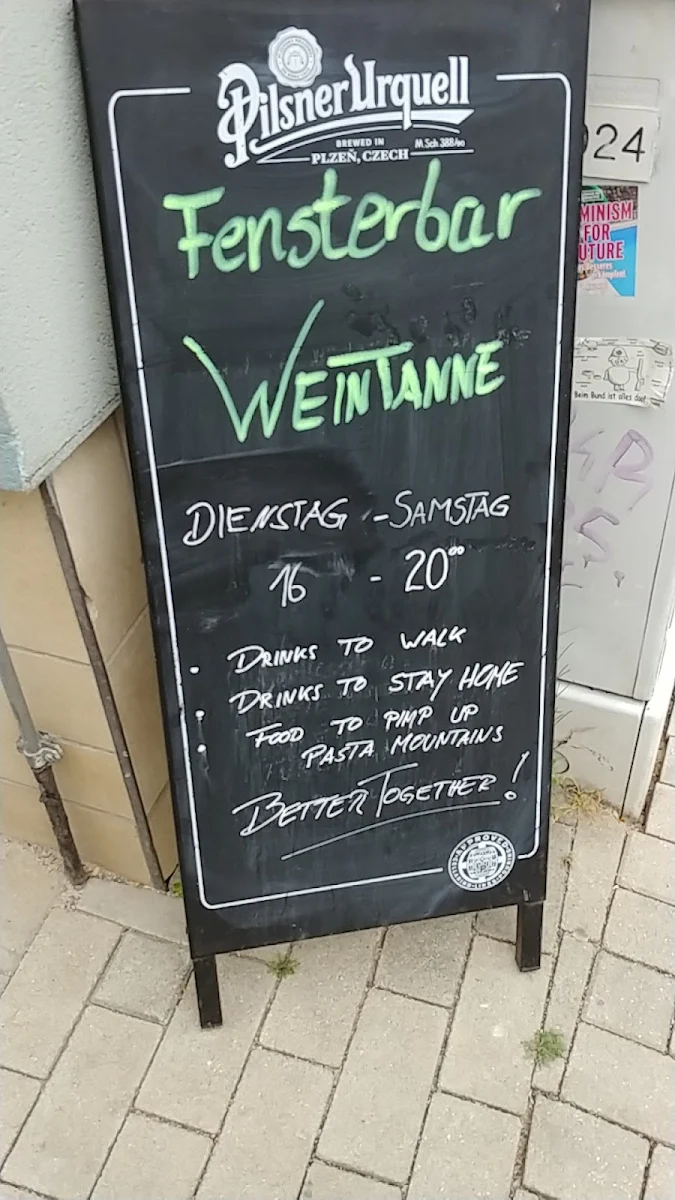 Pilsner Urquell
BREWED IN
PLZEŇ, CZECH
M.Sch 388/60
Fensterbar
WEINTANNE
DIENSTAG - SAMSTAG
16 - 20⁰⁰
• DRINKS TO WALK
• DRINKS TO STAY HOME
• FOOD TO PIMP UP
PASTA MOUNTAINS
BETTER TOGETHER!
APPROVED
024
MINISM
FOR
UTURE
Beim Bund ist alles doof